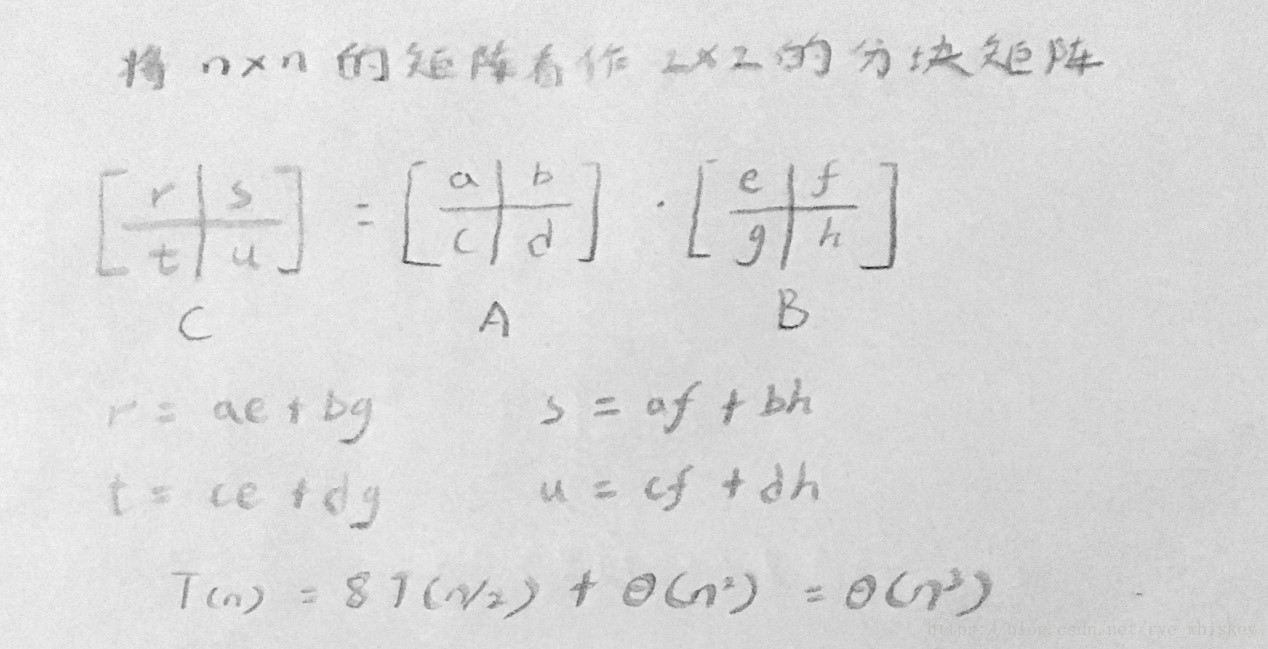 将 n×n 的矩阵看作 2×2 的分块矩阵
[ r | s ] = [ a | b ] · [ e | f ]
[ t | u ] [ c | d ] [ g | h ]
C A B
r = ae + bg s = af + bh
t = ce + dg u = cf + dh
T(n) = 8T(n/2) + Θ(n²) = Θ(n³)
https://blog.csdn.net/rye_whiskey